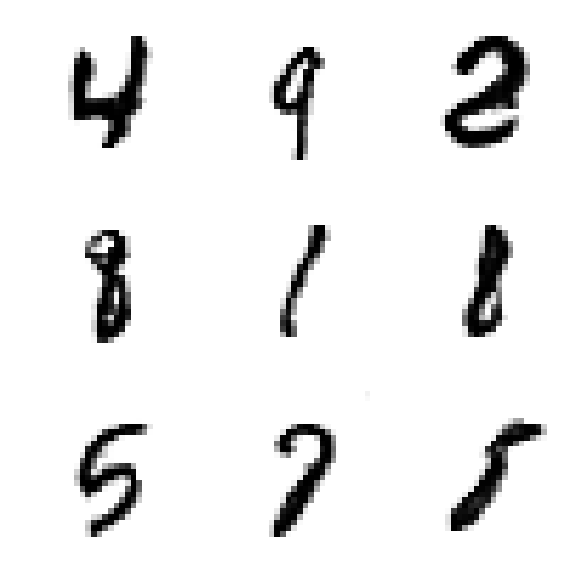 4 9 2
8 1 8
5 7 5